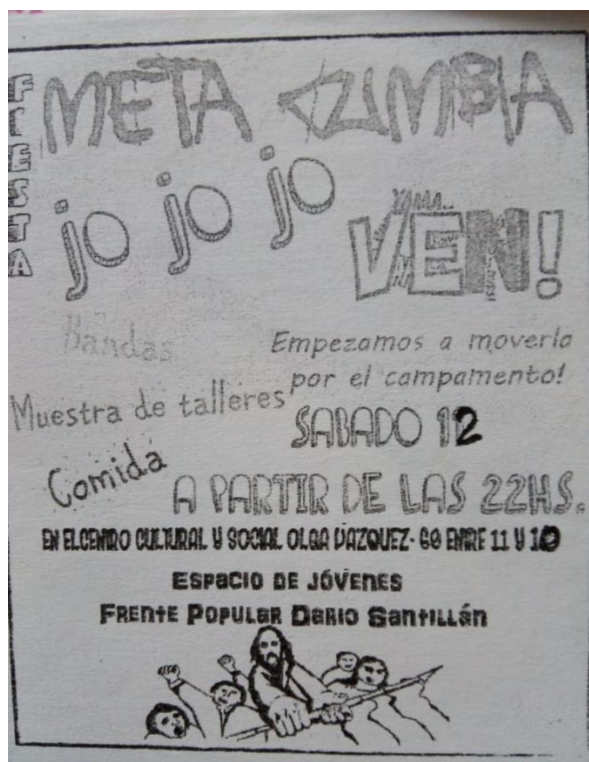 FIESTA
META CUMBIA
jo jo jo
VEN!
Bandas
Empezamos a moverla
por el campamento!
Muestra de talleres
SABADO 12
Comida
A PARTIR DE LAS 22HS.
EN EL CENTRO CULTURAL Y SOCIAL OLGA VAZQUEZ - 60 ENTRE 11 Y 10
ESPACIO DE JÓVENES
FRENTE POPULAR DARIO SANTILLÁN